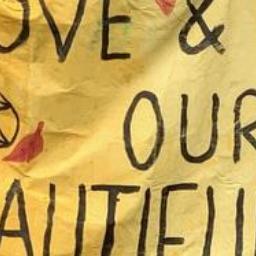 OVE &
OUR
AUTIFUL